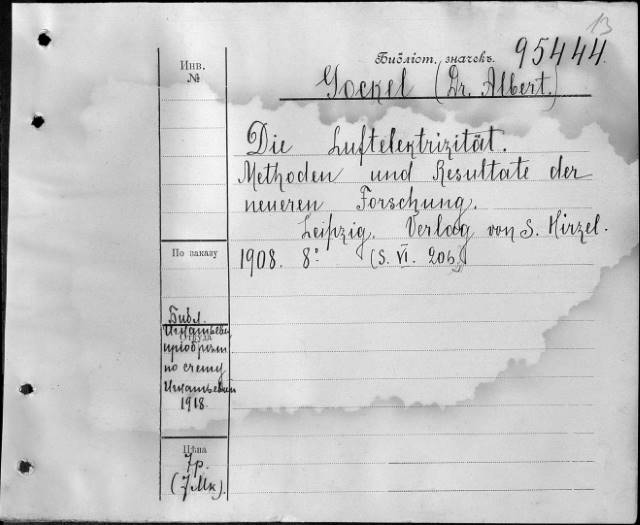 13
Библіот. значекъ. 95444.
Инв.
№
Gockel (Dr. Albert.)
Die Luftelektrizität.
Methoden und Resultate der
neueren Forschung.
Leipzig. Verlag von S. Hirzel.
По заказу
1908. 8:° (S. VI. 206.)
Библ.
Откуда
по счету
1918.
Цѣна
7 р.
(7 Mk.)